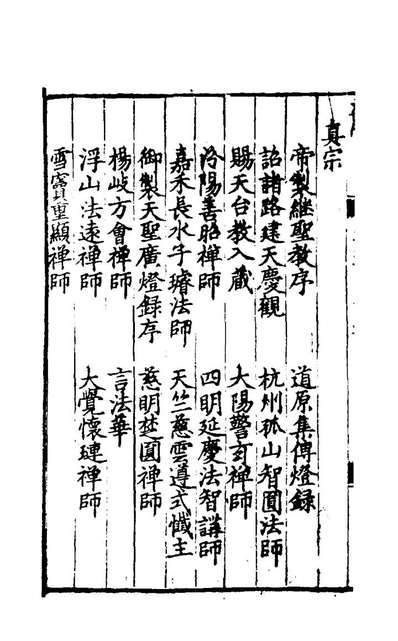 真宗
帝製繼聖教序 道原集傳燈錄
詔諸路建天慶觀 杭州孤山智圓法師
賜天台教入藏 大陽警玄禪師
汾陽善昭禪師 四明延慶法智講師
嘉禾長水子璿法師 天竺慈雲遵式懺主
御製天聖廣燈錄序 慈明楚圓禪師
楊岐方會禪師 言法華
浮山法遠禪師 大覺懷璉禪師
雪竇重顯禪師